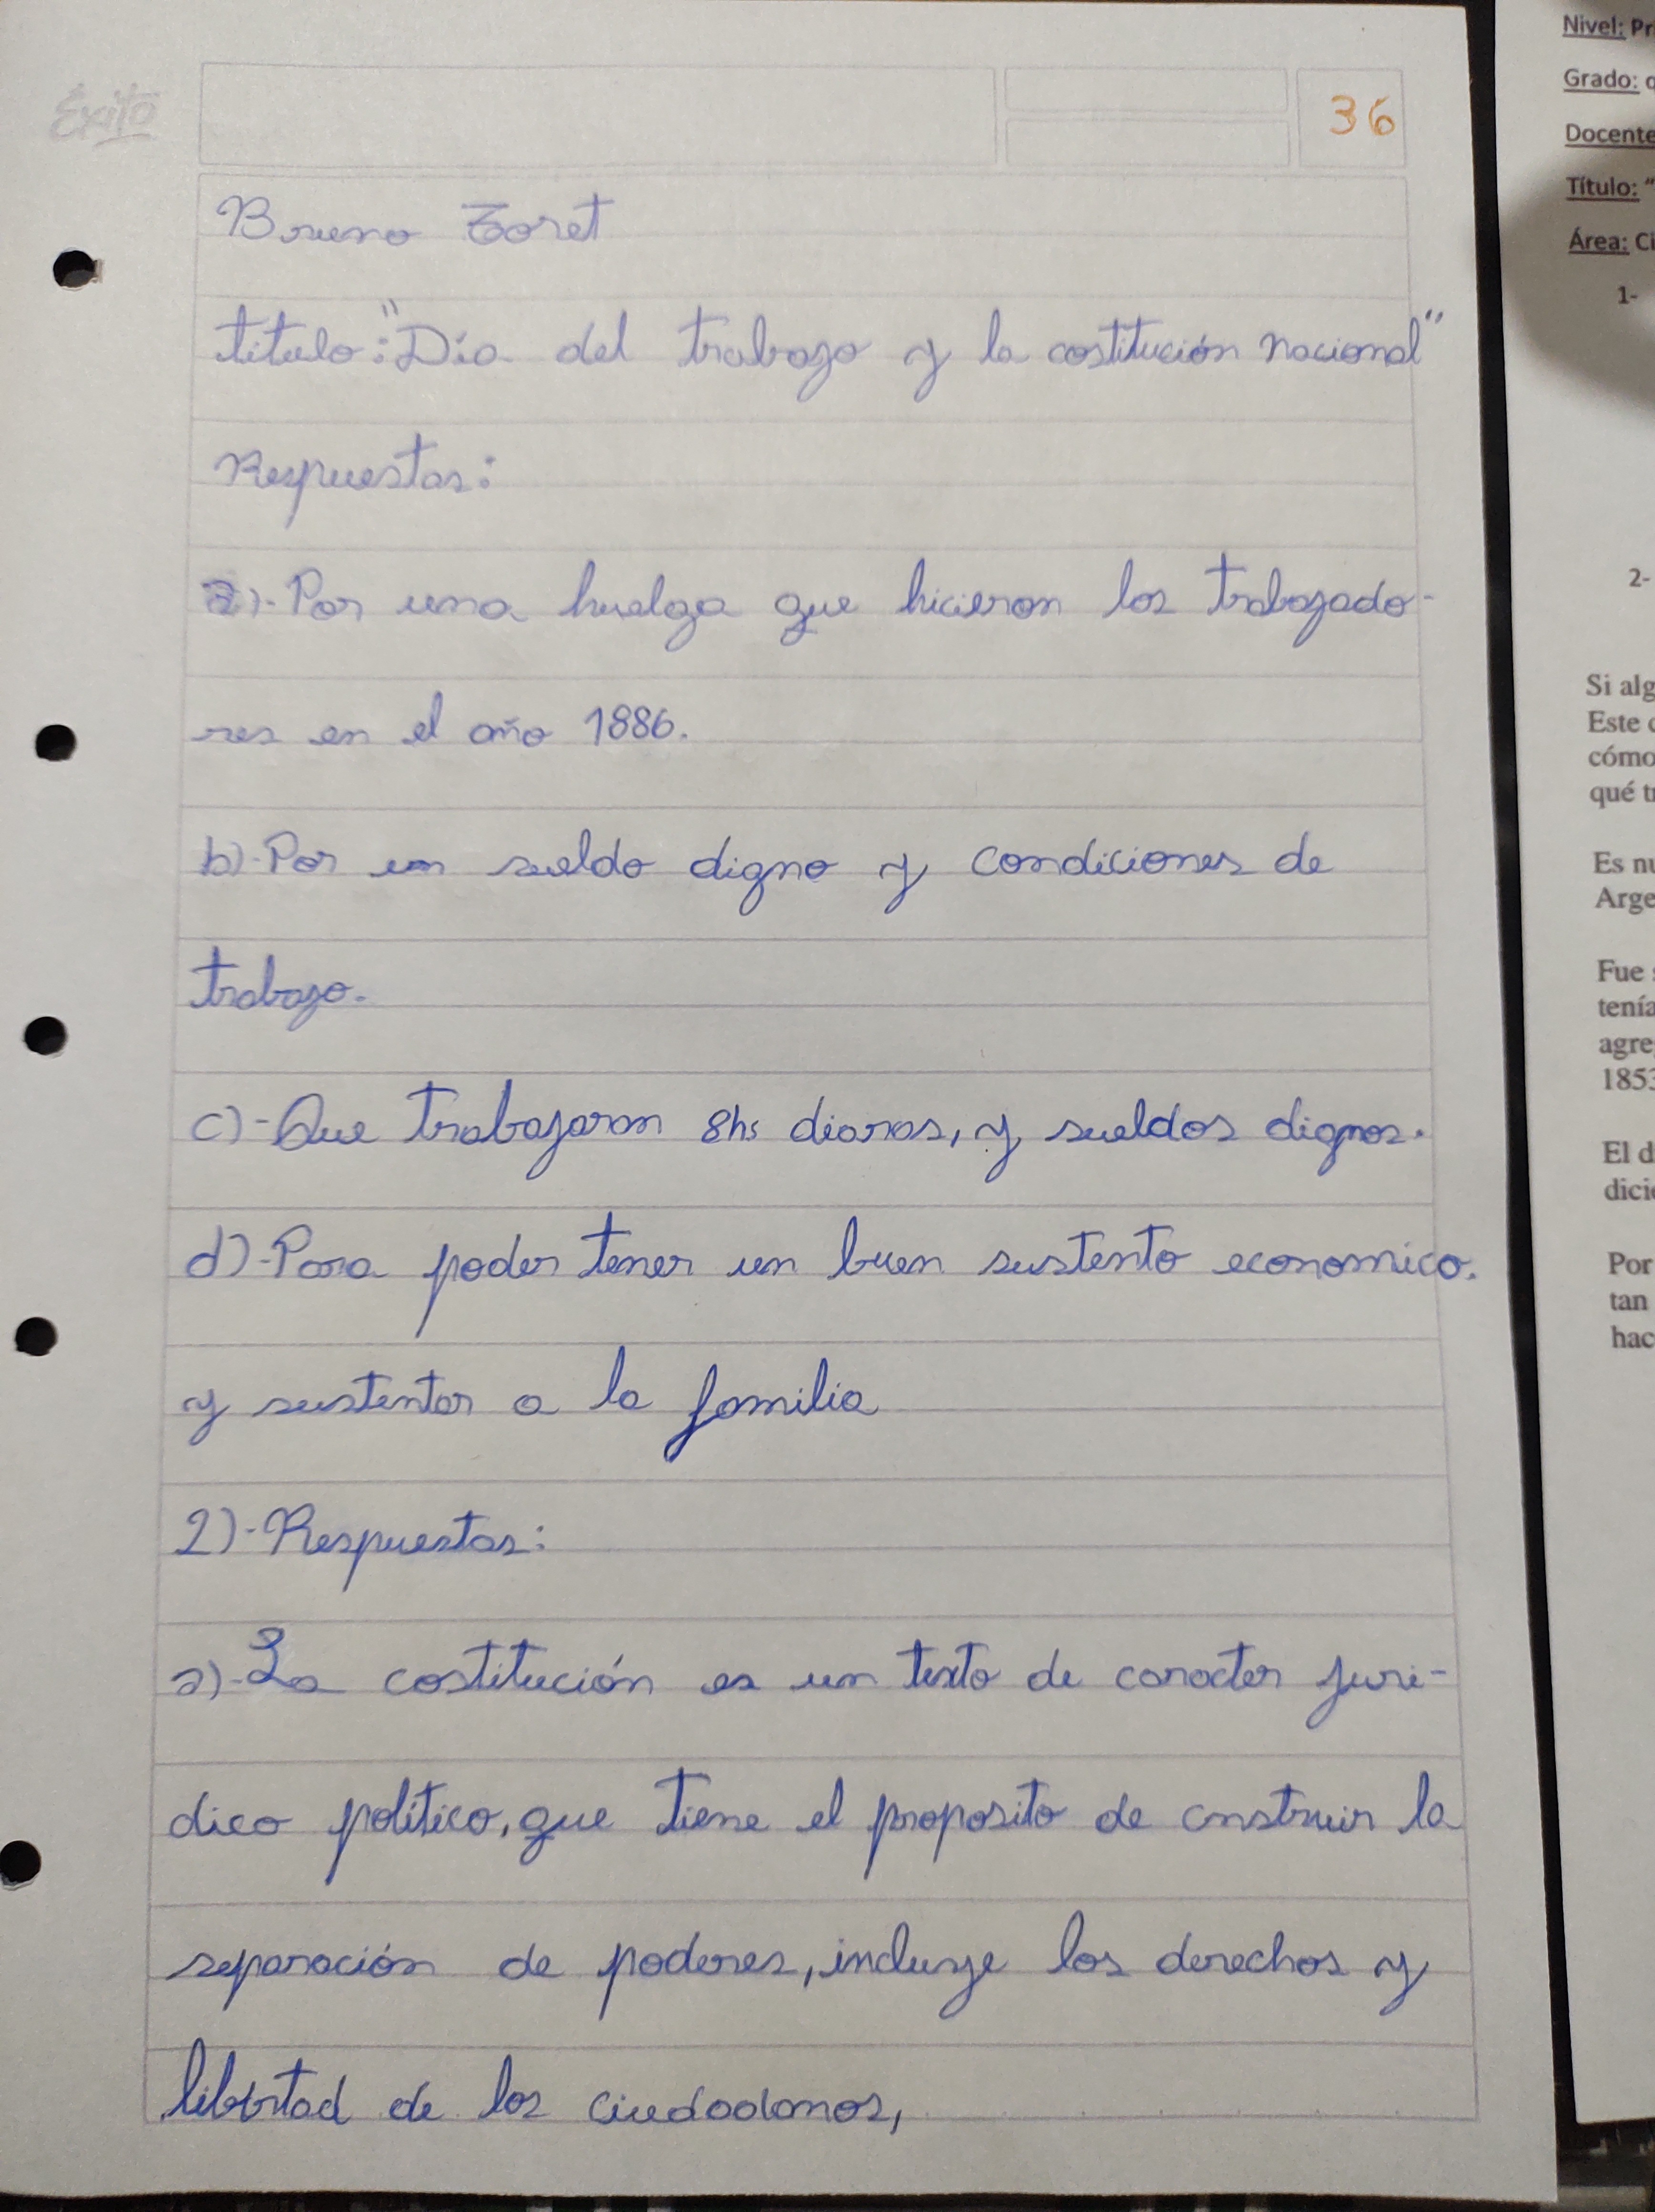 Éxito
36
Bruno Toret
titulo: "Día del trabajo y la costitución nacional"
Respuestas:
a)-Por una huelga que hicieron los trabajado-
res en el año 1886.
b)-Por un sueldo digno y condiciones de
trabajo.
c)-Que trabajaran 8hs diaras, y sueldos dignos.
d)-Para poder tener un buen sustento economico.
y sustentar a la familia
2)-Respuestas:
a)-La costitución es un texto de caracter juri-
dico político, que tiene el proposito de cnstruir la
separación de poderes, incluye los derechos y
libertad de los ciudadanos,
Nivel: Pr
Grado:
Docente
Título: "
Área: Ci
1-
2-
Si alg
Este
cómo
qué tr
Es nu
Arge
Fue
tenía
agre
1853
El d
dici
Por
tan
hac